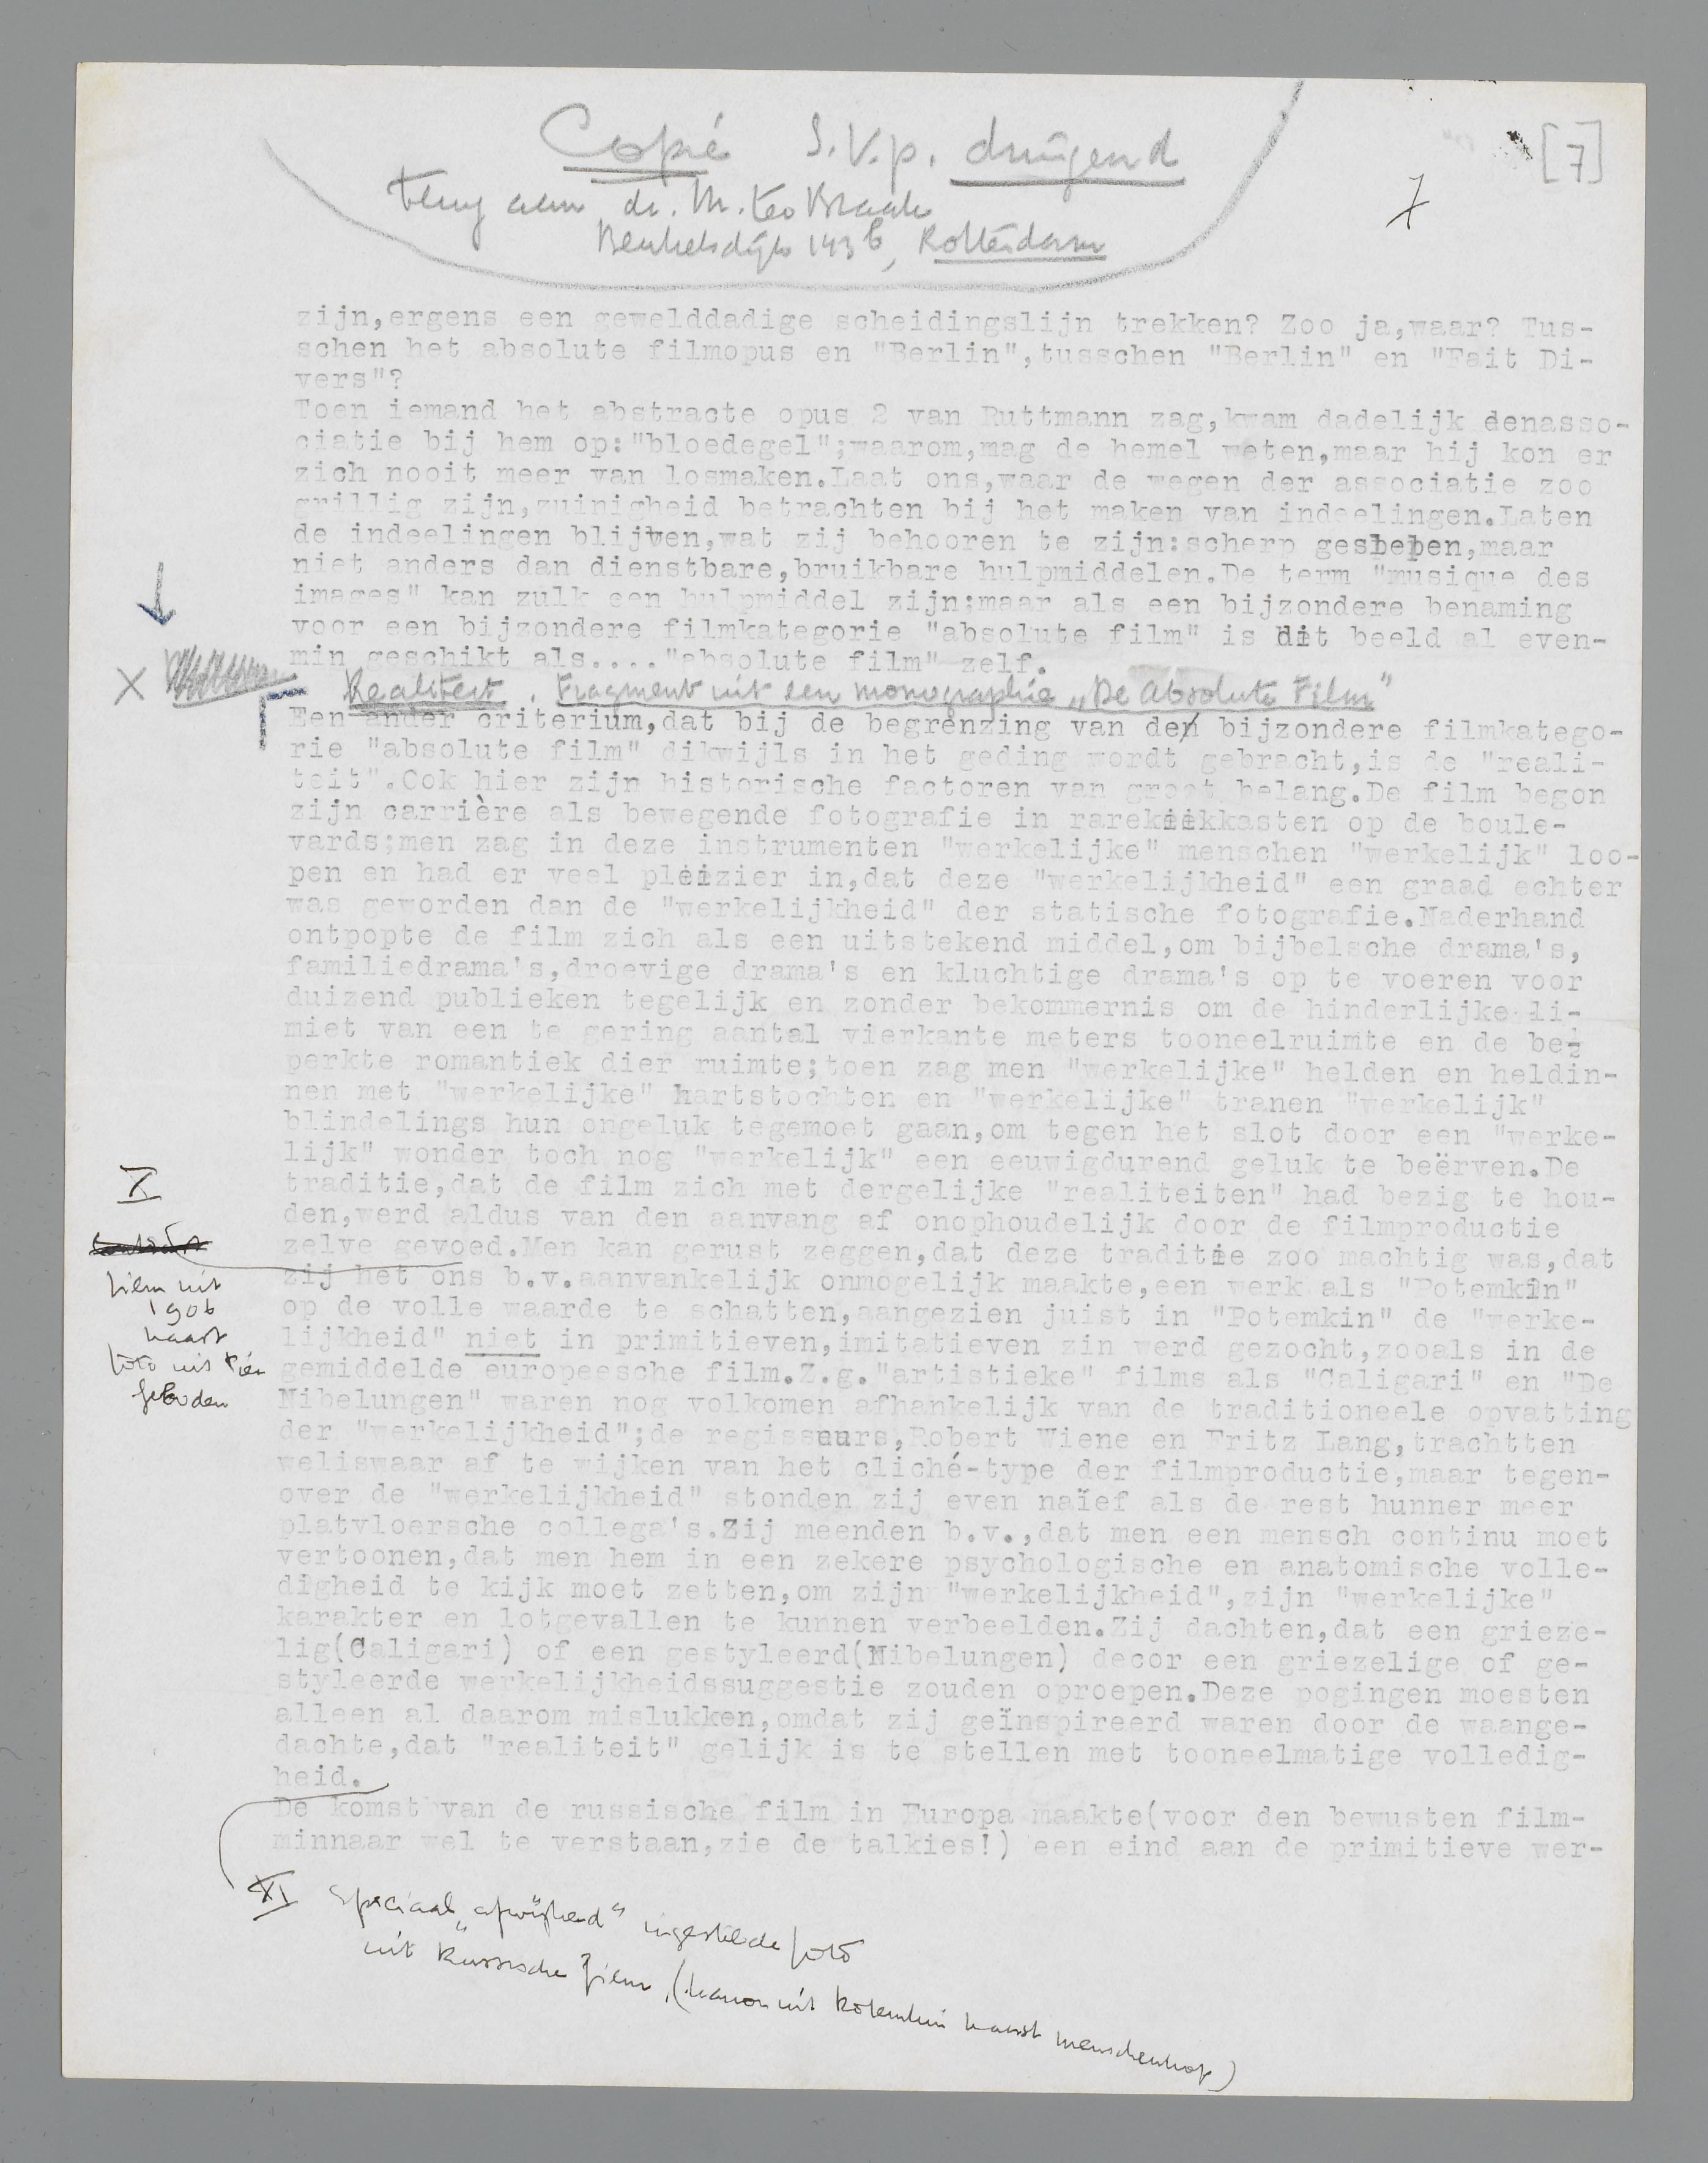 Copie S.V.p. dringend
[7]
7
terug aan dr. M. ter Braak
Beukelsdijk 143 b, Rotterdam
zijn,ergens een gewelddadige scheidingslijn trekken? Zoo ja,waar? Tus-
schen het absolute filmopus en "Berlin",tusschen "Berlin" en "Fait Di-
vers"?
Toen iemand het abstracte opus 2 van Ruttmann zag,kwam dadelijk denasso-
ciatie bij hem op:"bloedegel";waarom,mag de hemel weten,maar hij kon er
zich nooit meer van losmaken.Laat ons,waar de wegen der associatie zoo
grillig zijn,zuinigheid betrachten bij het maken van indeelingen.Laten
de indeelingen blijven,wat zij behooren te zijn:scherp geslepen,maar
niet anders dan dienstbare,bruikbare hulpmiddelen.De term "musique des
images" kan zulk een hulpmiddel zijn;maar als een bijzondere benaming
voor een bijzondere filmkategorie "absolute film" is dit beeld al even-
min geschikt als...."absolute film" zelf.
X Realiteit. Fragment uit een monographie „De Absolute Film"
Een ander criterium,dat bij de begrenzing van de bijzondere filmkatego-
rie "absolute film" dikwijls in het geding wordt gebracht,is de "reali-
teit".Ook hier zijn historische factoren van groot belang.De film begon
zijn carrière als bewegende fotografie in rarekiekkasten op de boule-
vards;men zag in deze instrumenten "werkelijke" menschen "werkelijk" loo-
pen en had er veel pleizier in,dat deze "werkelijkheid" een graad echter
was geworden dan de "werkelijkheid" der statische fotografie.Naderhand
ontpopte de film zich als een uitstekend middel,om bijbelsche drama's,
familiedrama's,droevige drama's en kluchtige drama's op te voeren voor
duizend publieken tegelijk en zonder bekommernis om de hinderlijke li-
miet van een te gering aantal vierkante meters tooneelruimte en de be-
perkte romantiek dier ruimte;toen zag men "werkelijke" helden en heldin-
nen met "werkelijke" hartstochten en "werkelijke" tranen "werkelijk"
blindelings hun ongeluk tegemoet gaan,om tegen het slot door een "werke-
lijk" wonder toch nog "werkelijk" een eeuwigdurend geluk te beërven.De
traditie,dat de film zich met dergelijke "realiteiten" had bezig te hou-
den,werd aldus van den aanvang af onophoudelijk door de filmproductie
zelve gevoed.Men kan gerust zeggen,dat deze traditie zoo machtig was,dat
zij het ons b.v.aanvankelijk onmogelijk maakte,een werk als "Potemkin"
op de volle waarde te schatten,aangezien juist in "Potemkin" de "werke-
lijkheid" niet in primitieven,imitatieven zin werd gezocht,zooals in de
gemiddelde europeesche film.Z.g."artistieke" films als "Caligari" en "De
Nibelungen" waren nog volkomen afhankelijk van de traditioneele opvatting
der "werkelijkheid";de regisseurs,Robert Wiene en Fritz Lang,trachtten
weliswaar af te wijken van het cliché-type der filmproductie,maar tegen-
over de "werkelijkheid" stonden zij even naïef als de rest hunner meer
platvloersche collega's.Zij meenden b.v.,dat men een mensch continu moet
vertoonen,dat men hem in een zekere psychologische en anatomische volle-
digheid te kijk moet zetten,om zijn "werkelijkheid",zijn "werkelijke"
karakter en lotgevallen te kunnen verbeelden.Zij dachten,dat een grieze-
lig(Caligari) of een gestyleerd(Nibelungen) decor een griezelige of ge-
styleerde werkelijkheidssuggestie zouden oproepen.Deze pogingen moesten
alleen al daarom mislukken,omdat zij geïnspireerd waren door de waange-
dachte,dat "realiteit" gelijk is te stellen met tooneelmatige volledig-
heid.
De komst van de russische film in Europa maakte(voor den bewusten film-
minnaar wel te verstaan,zie de talkies!) een eind aan de primitieve wer-
X
film uit
1906
naast
foto uit
XI Speciaal ingestelde foto
uit Russische film, (kanon uit Potemkin naast menschenkop)